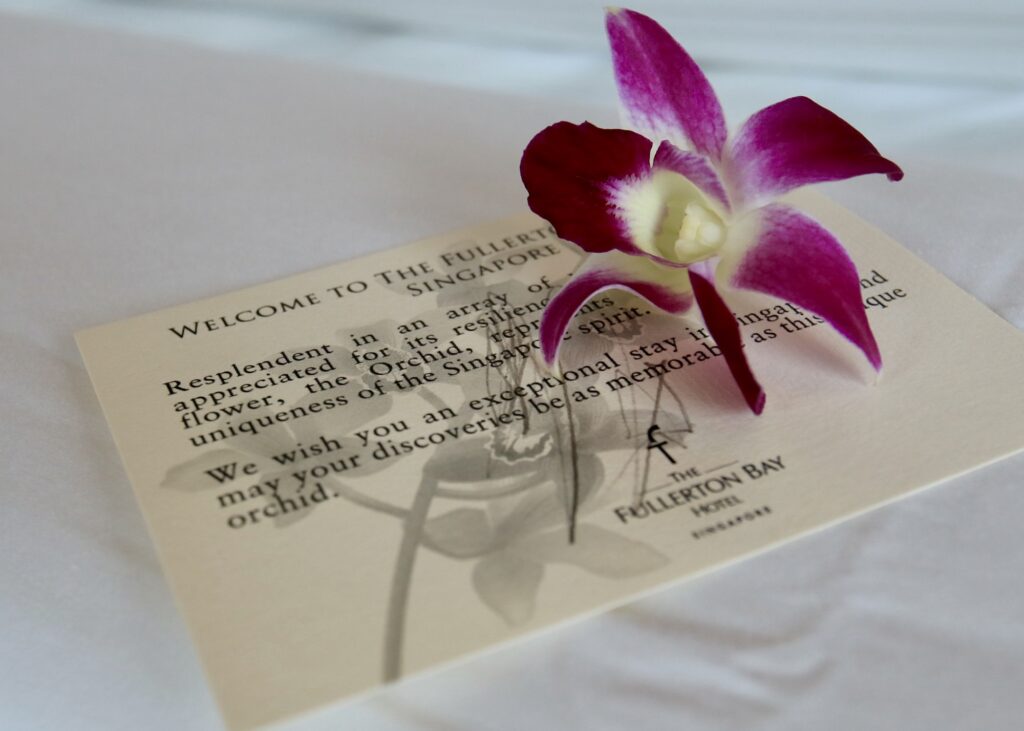 WELCOME TO THE FULLERT
SINGAPORE
Resplendent in an array of
appreciated for its resilienc
flower, the Orchid, represents
uniqueness of the Singapore spirit.
We wish you an exceptional stay in Singap nd
may your discoveries be as memorable as this que
orchid.
f
THE
FULLERTON BAY
HOTEL
SINGAPORE